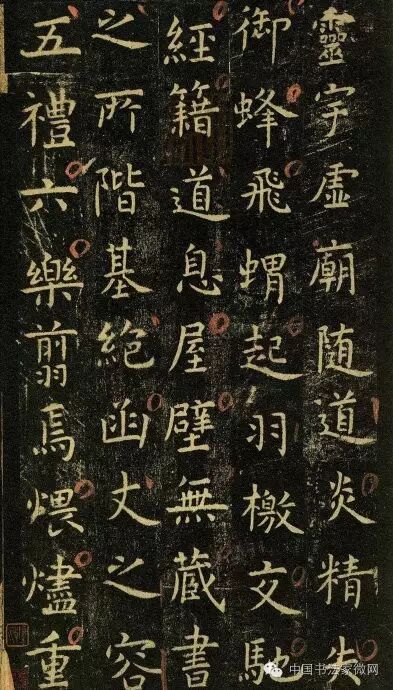 靈宇虛廟隨道炎精失
御蜂飛蝟起羽檄交馳
經籍道息屋壁無藏書
之所階基絕函丈之容
五禮六樂翦焉煨燼重
中国书法家微网